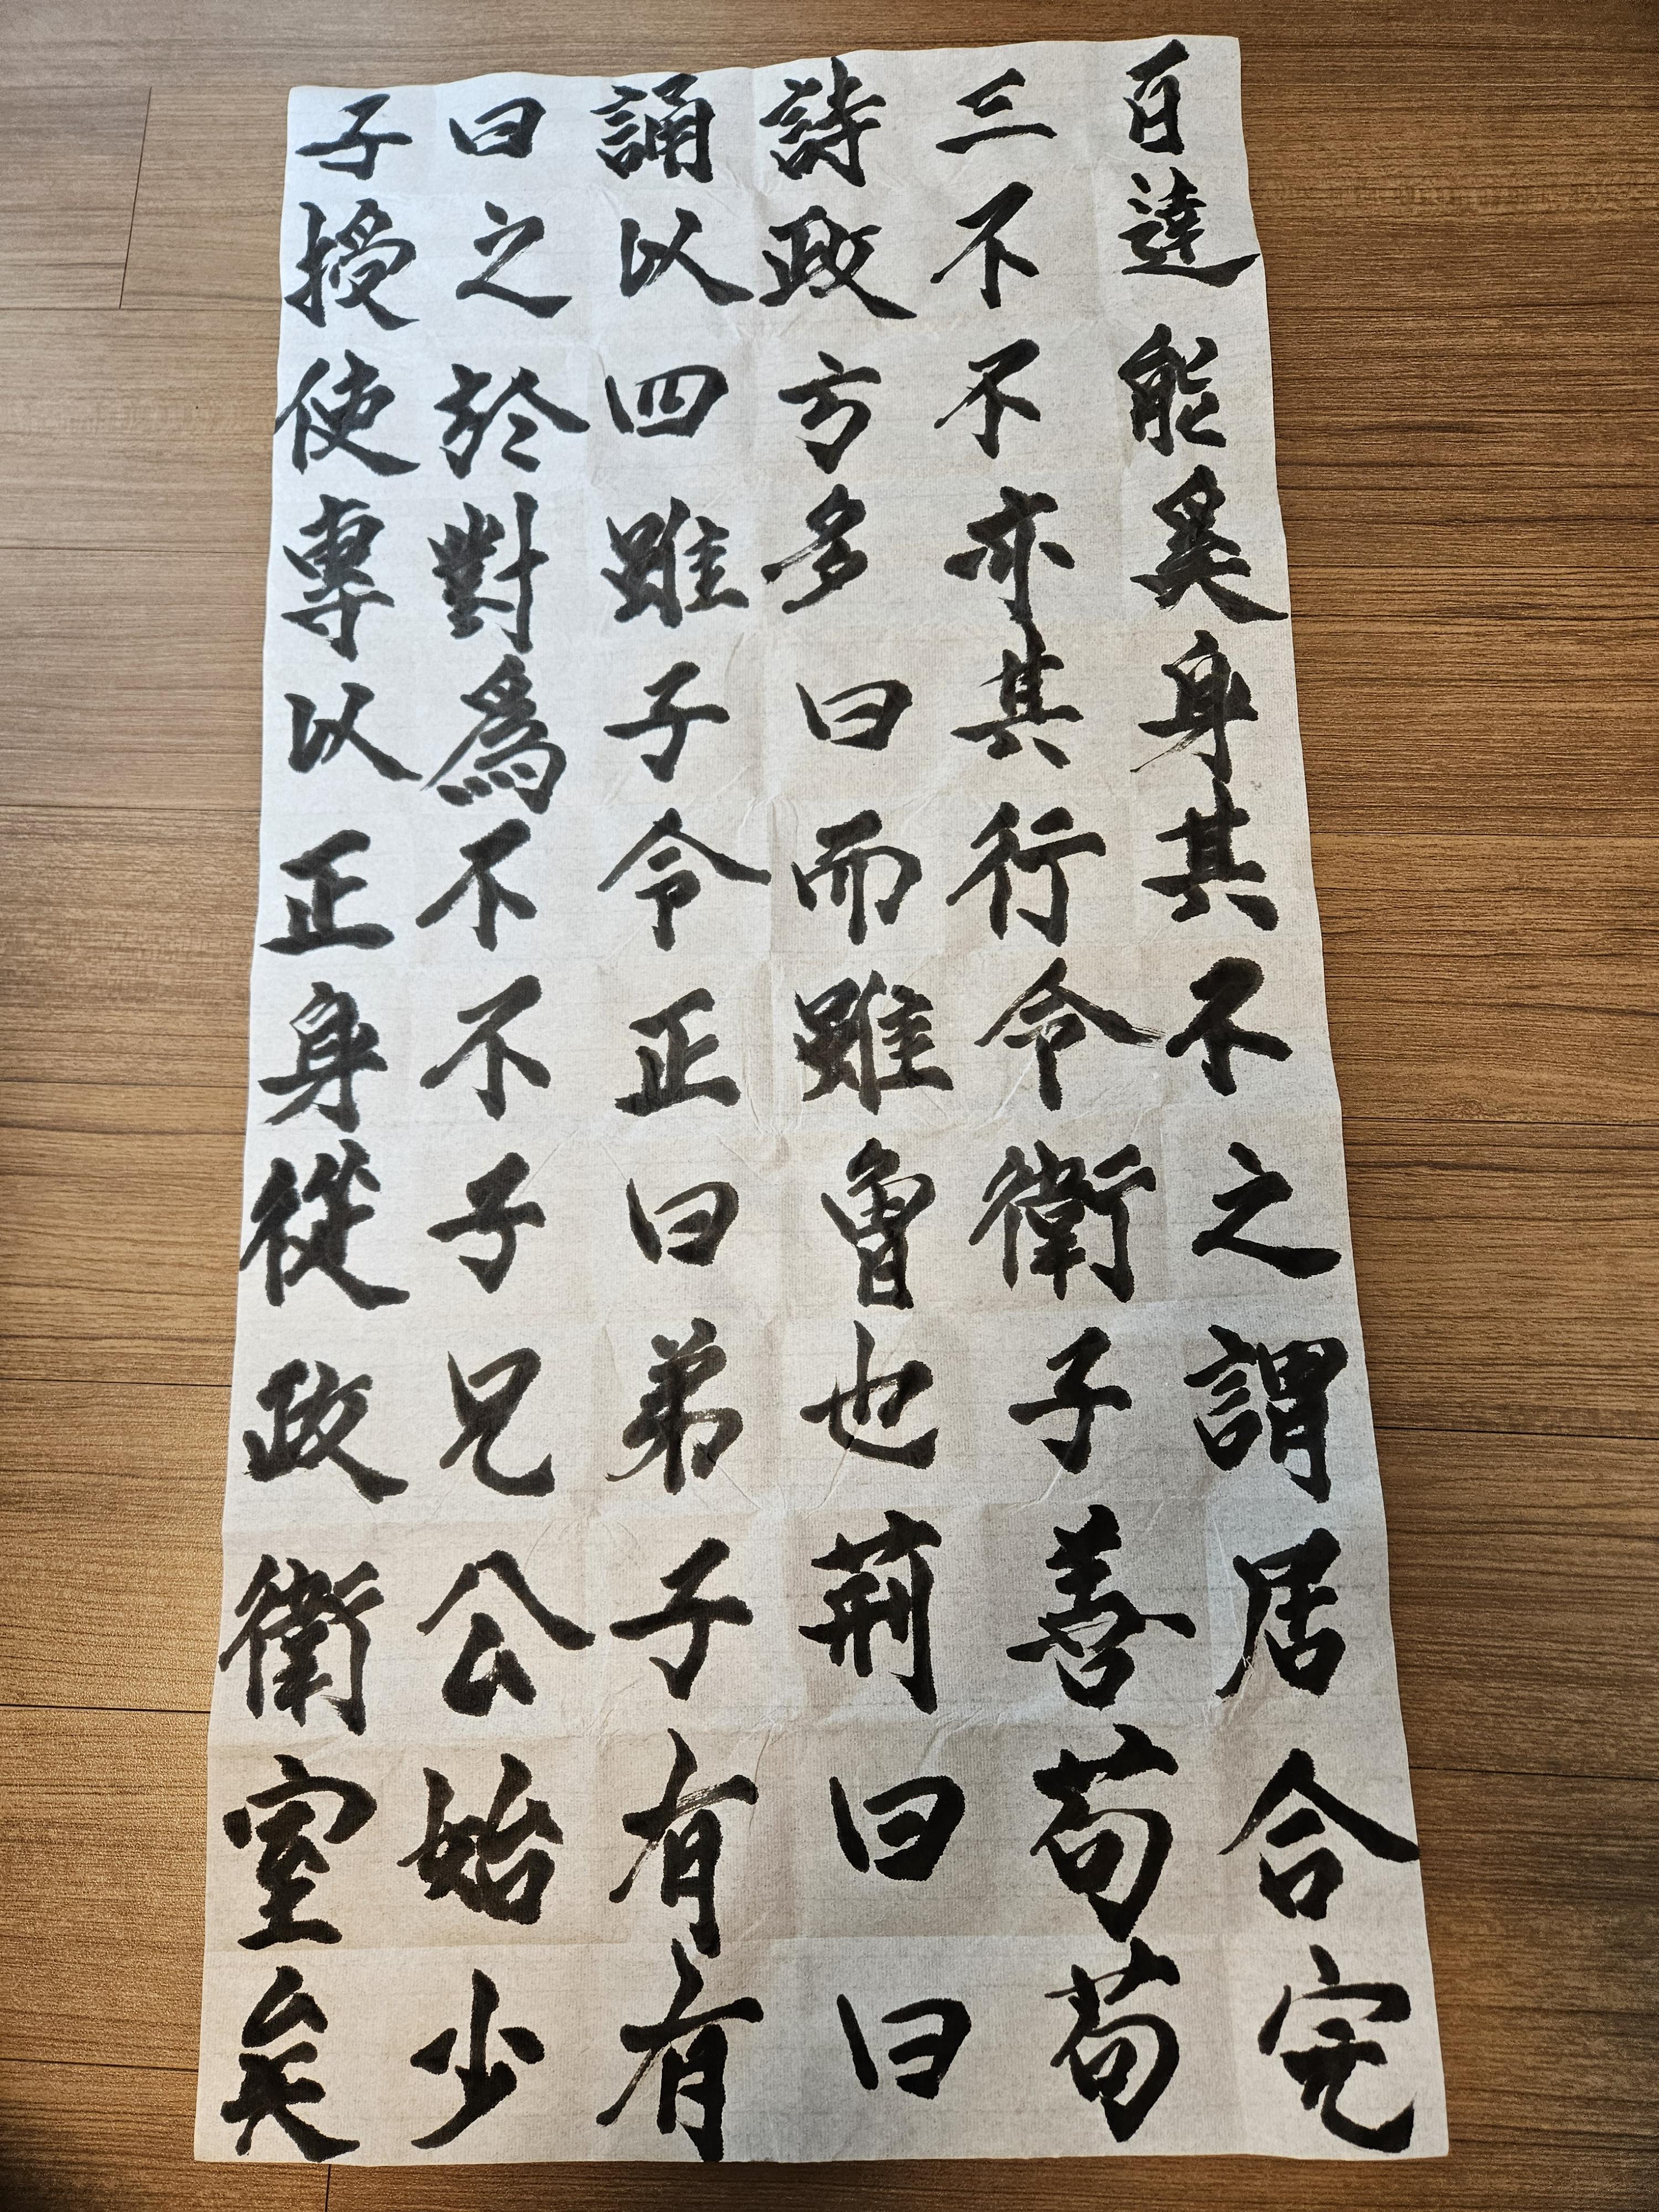 子曰誦詩三百
授之以政不達
使於四方不能
專對雖多亦奚
以爲子曰其身
正不令而行其
身不正雖令不
從子曰魯衛之
政兄弟也子謂
衛公子荊善居
室始有曰苟合
矣少有曰苟完